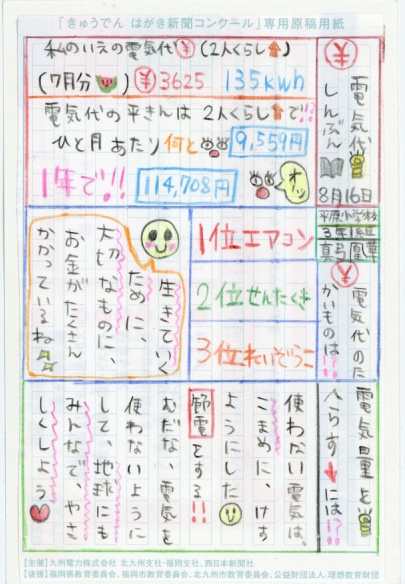 「きゅうでん はがき新聞コンクール」専用原稿用紙
¥
電気代
しんぶん
8月16日
平原小学校
3年1組
私のいえの電気代¥(2人くらし)
(7月分)¥3625 135kwh
電気代の平きんは2人くらしで!?
ひと月あたり何と9,559円
1年で!! 114,708円
オッ
¥
電気代のた
かいものは!?
1位エアコン
2位せんたくき
3位れいぞうこ
生きていく
ために、
大切なものに、
お金がたくさん
かかっているね
電気量を
へらす↓には!?
使わない電気は、
こまめに、けす
ようにした
節電をする!!
むだな、電気を
使わないように
して、地球にも
みんなで、やさ
しくしよう
【主催】九州電力株式会社 北九州支社・福岡支社、西日本新聞社
【後援】福岡県教育委員会、福岡市教育委員会、北九州市教育委員会、公益財団法人・理想教育財団